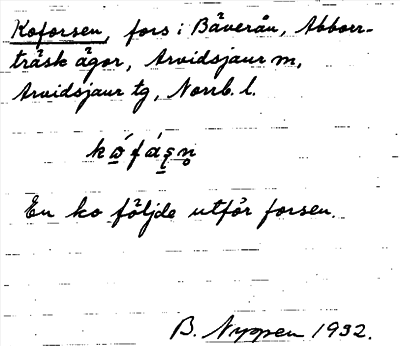 Koforsen, fors i Bäverån, Abborr-
träsk ägor, Arvidsjaur m,
Arvidsjaur tg, Norrb. l.
En ko följde utför forsen.
B. Nyppen 1932.